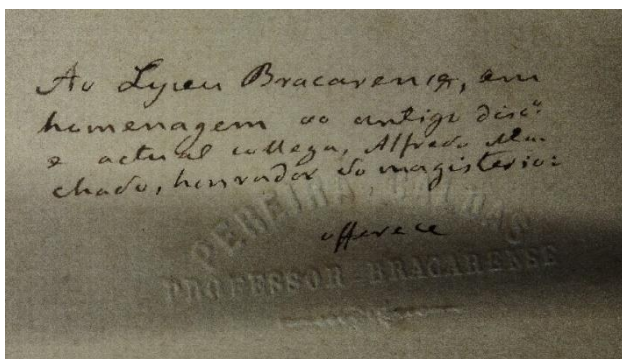 Ao Lyceu Bracarense, em
homenagem ao antigo disc.º
e actual collega, Alfredo Ma-
chado, honrador do magisterio:
offerece
PEREIRA CALDAS
PROFESSOR BRACARENSE